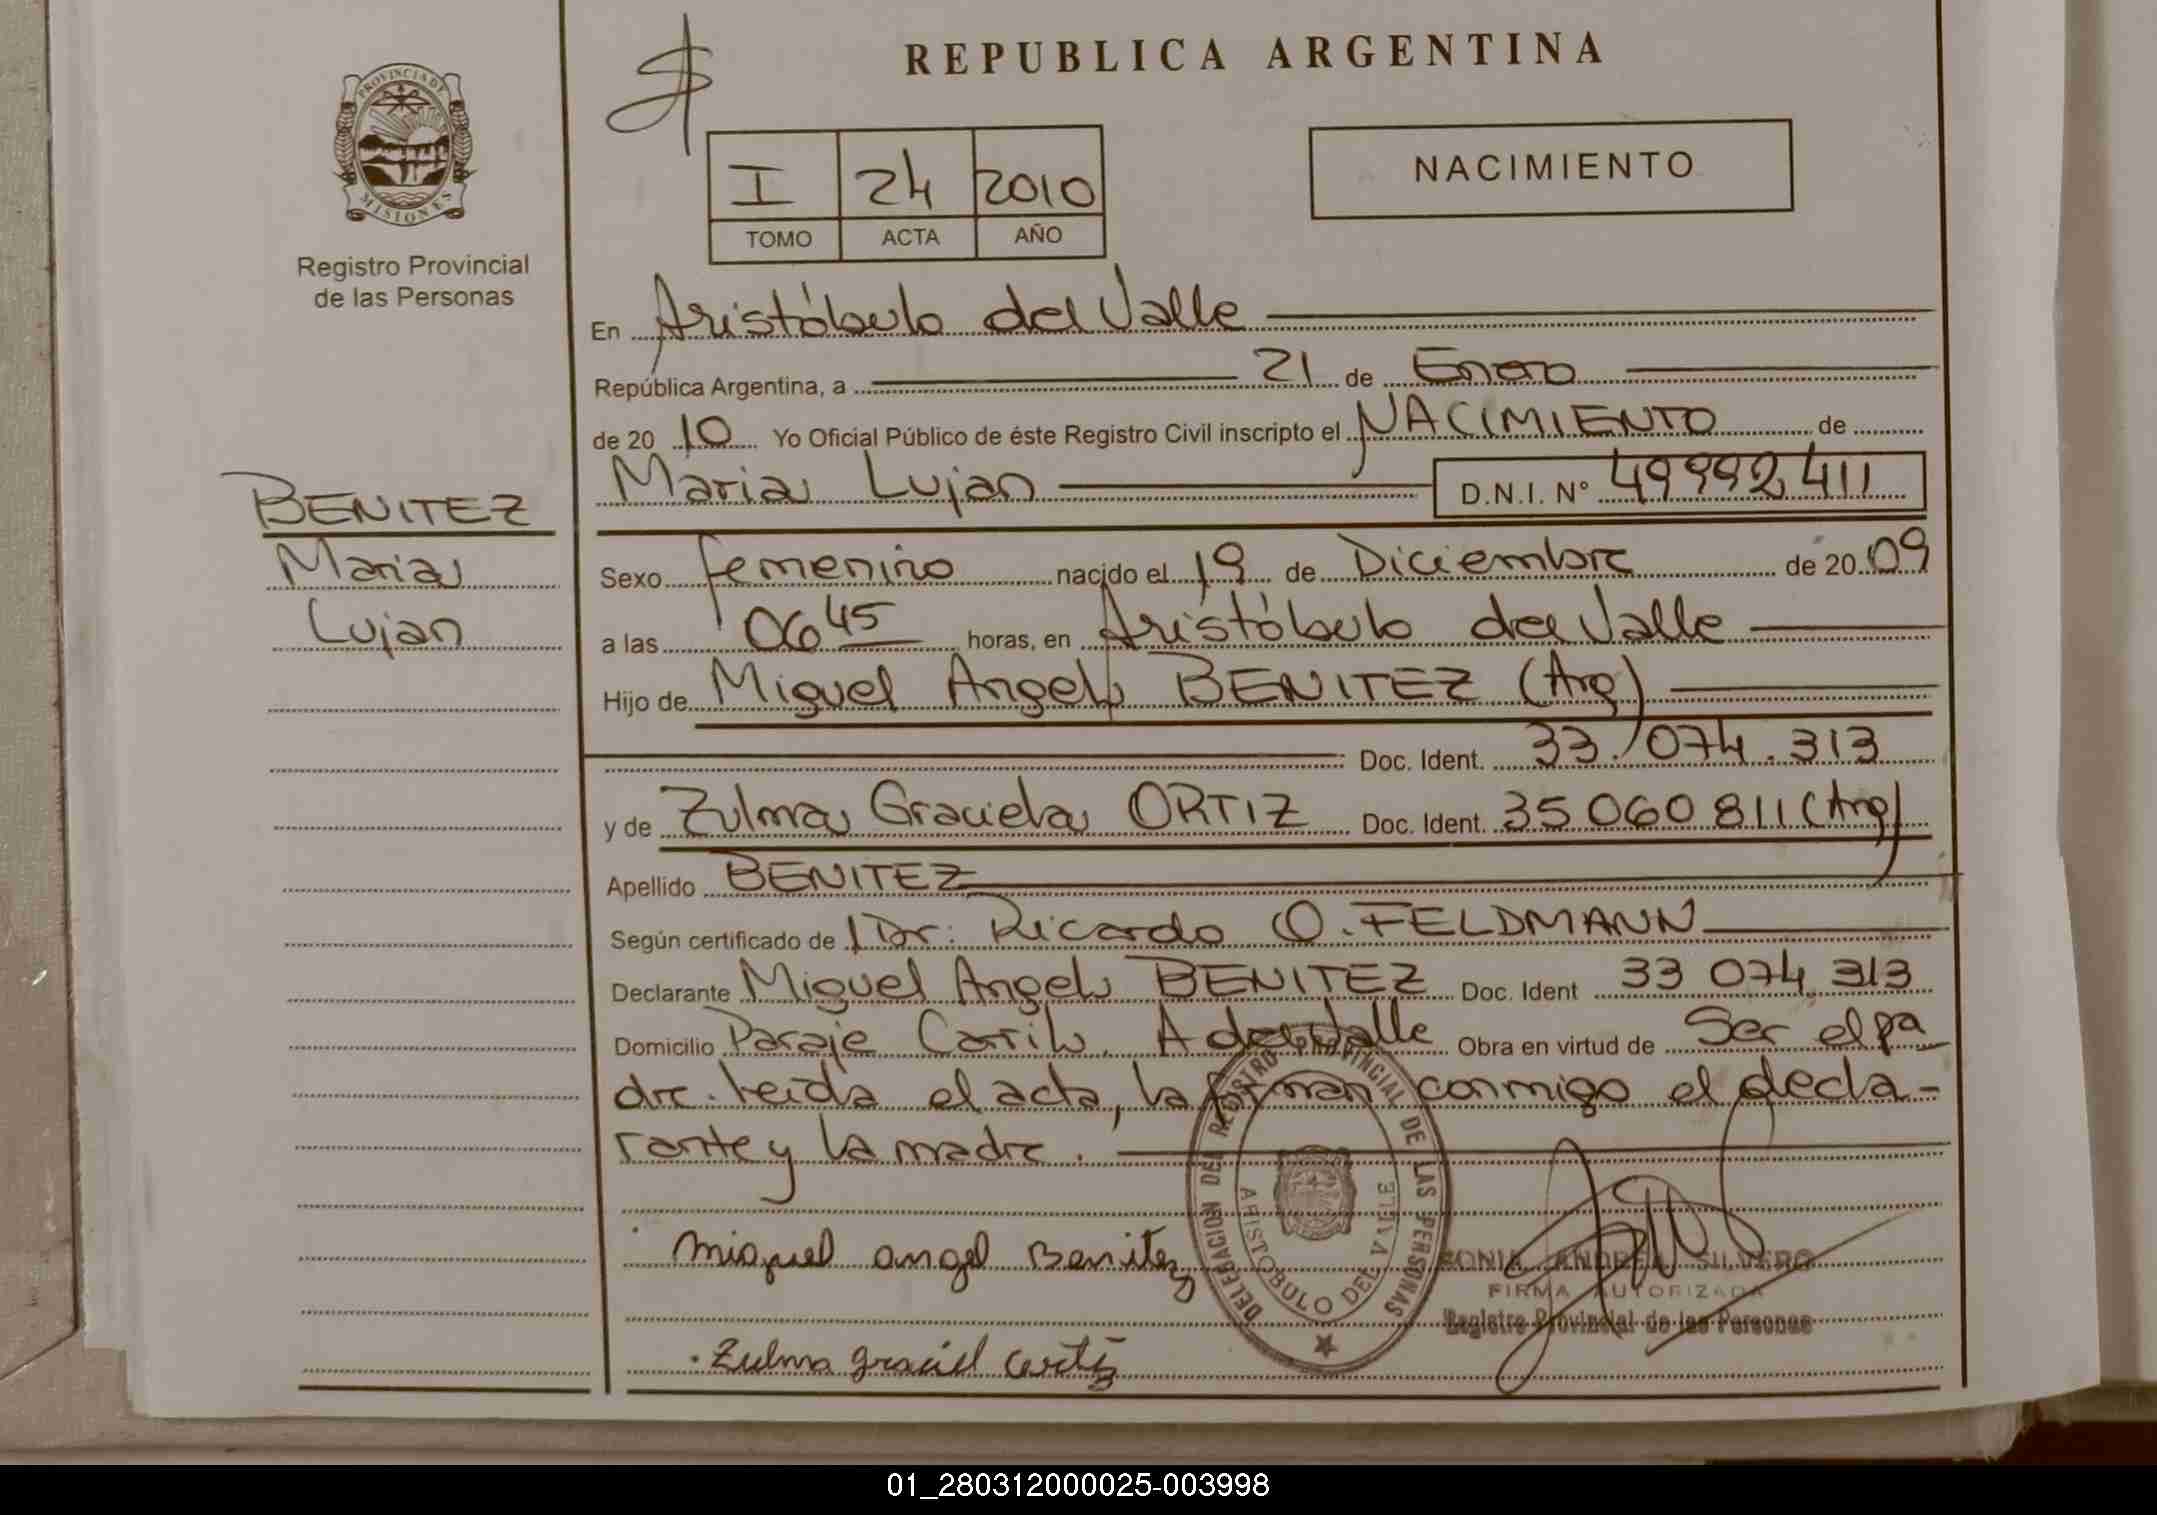 REPUBLICA ARGENTINA
PROVINCIA DE MISIONES
Registro Provincial
de las Personas
I 24 2010
TOMO ACTA AÑO
NACIMIENTO
En Aristóbulo del Valle
República Argentina, a 21 de Enero
de 20 10 Yo Oficial Público de éste Registro Civil inscripto el NACIMIENTO de
Maria Lujan D.N.I. N° 49992411
BENITEZ
Maria
Lujan
Sexo femenino nacido el 19 de Diciembre de 20 09
a las 06 45 horas, en Aristóbulo del Valle
Hijo de Miguel Angel BENITEZ (Arg)
Doc. Ident. 33.074.313
y de Zulma Graciela ORTIZ Doc. Ident. 35060811 (Arg)
Apellido BENITEZ
Según certificado de Dr. Ricardo O. FELDMANN
Declarante Miguel Angel BENITEZ Doc. Ident 33 074 313
Domicilio Paraje Carrilo. A del Valle Obra en virtud de Ser el pa
dre. Leida el acta, la firman conmigo el decla-
rante y la madre.
DELEGACION DEL REGISTRO PROVINCIAL DE LAS PERSONAS
ARISTOBULO DEL VALLE
miguel angel Benitez
SONIA ANDREA SILVERO
FIRMA AUTORIZADA
Registro Provincial de las Personas
Zulma graciel
01_280312000025-003998